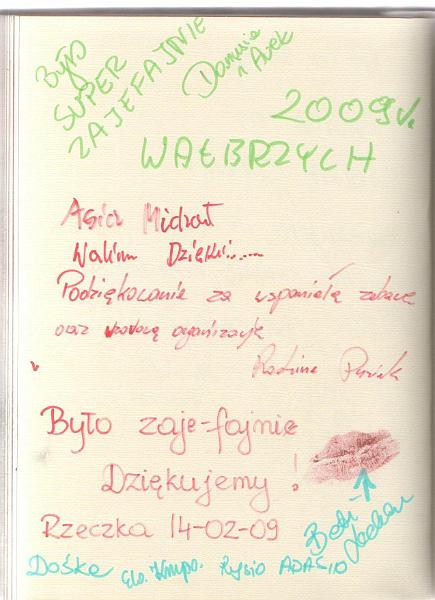 BYŁO
SUPER
ZAJEFAJNIE
Danusia
i Arek
2009r.
WAŁBRZYCH
Asia Michał
Walim Dzięki.....
Podziękowanie za wspaniałą zabawę
oraz wzorową organizację
Rodzina
Było zaje-fajnie
Dziękujemy!
Rzeczka 14-02-09
Dośka Rysio ADAŚIO